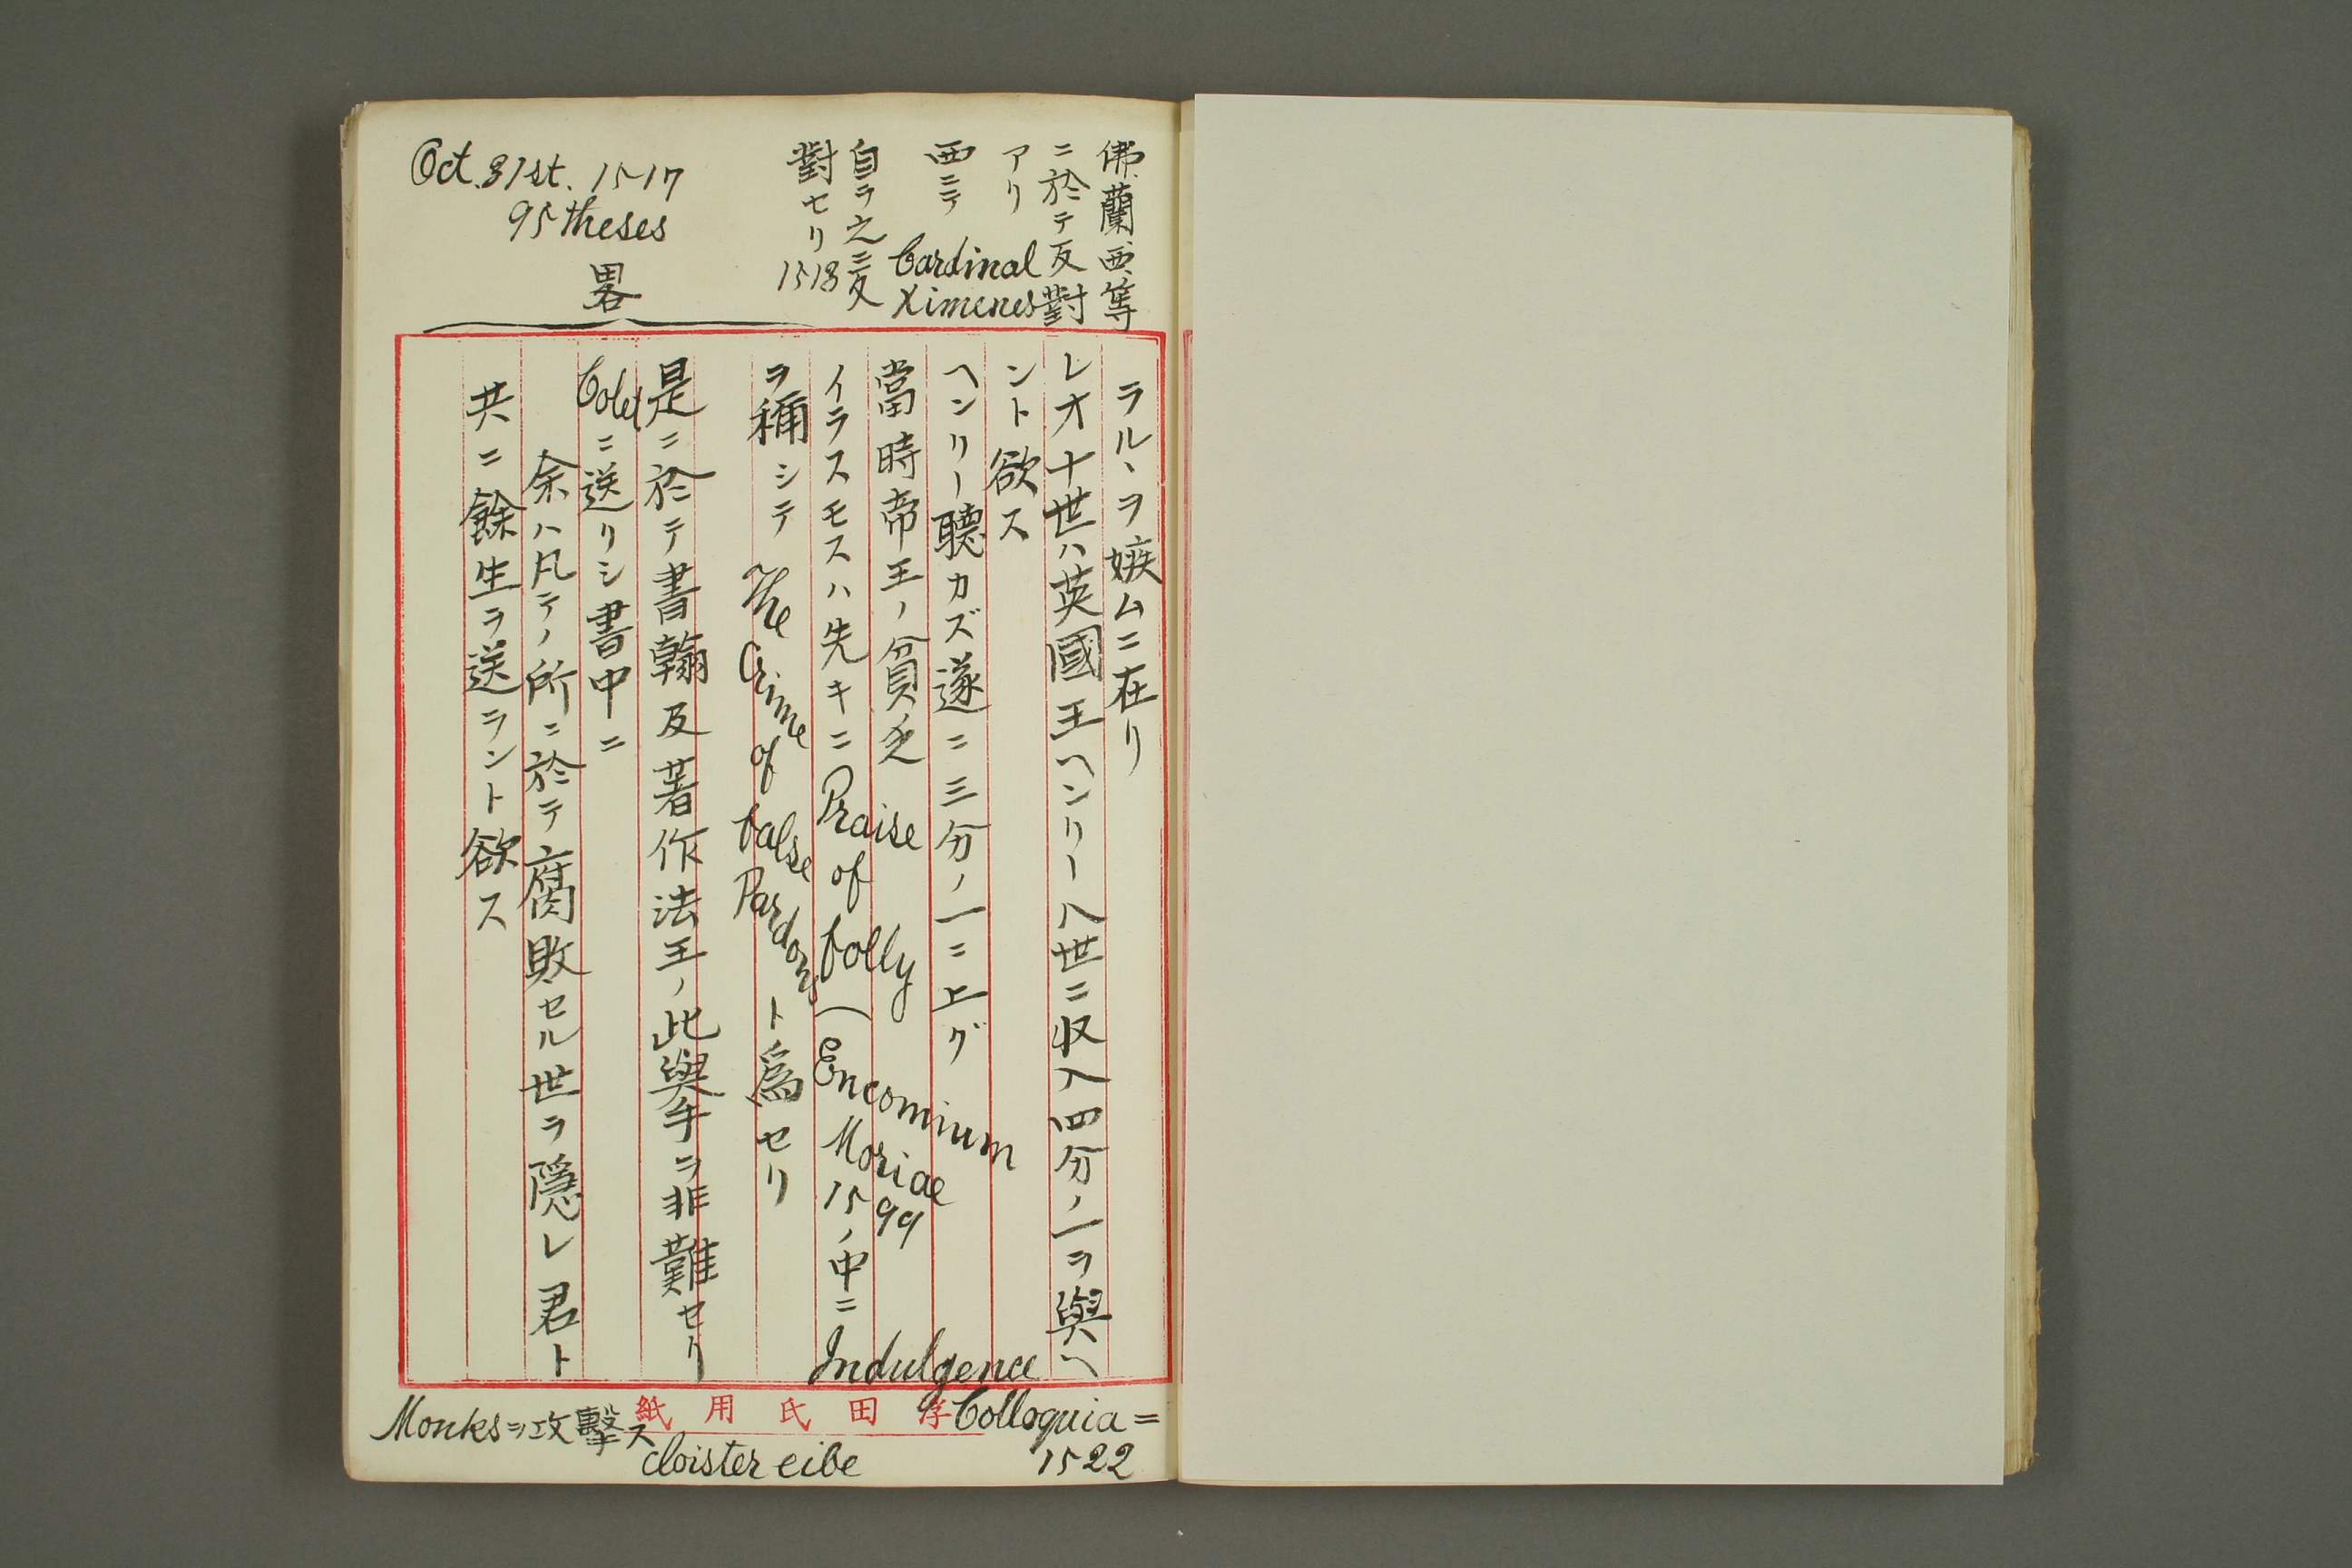 佛蘭西等
ニ於テ反對
アリ
西ニテ
Cardinal
Ximenes
自ラ之ニ反
對セリ
1518
Oct. 31st. 1517
95 theses
畧
ラルヽヲ嫉ムニ在リ
レオ十世ハ英國王ヘンリー八世ニ収入四分ノ一ヲ與ヘ
ント欲ス
ヘンリー聴カズ遂ニ三分ノ一ニ上グ
當時帝王ノ貧乏
イラスモスハ先キニ Praise of Folly (Encomium Moriae 1599ノ中ニ Indulgence
ヲ稱シテ The Crime of false Pardons ト爲セリ
是ニ於テ書翰及著作法王ノ此與手ヲ非難セリ
Colet ニ送リシ書中ニ
余ハ凡テノ所ニ於テ腐敗セル世ヲ隠レ君ト
共ニ餘生ヲ送ラント欲ス
浮田氏用紙
Colloquia =
1522
Monksヲ攻擊ス
cloister